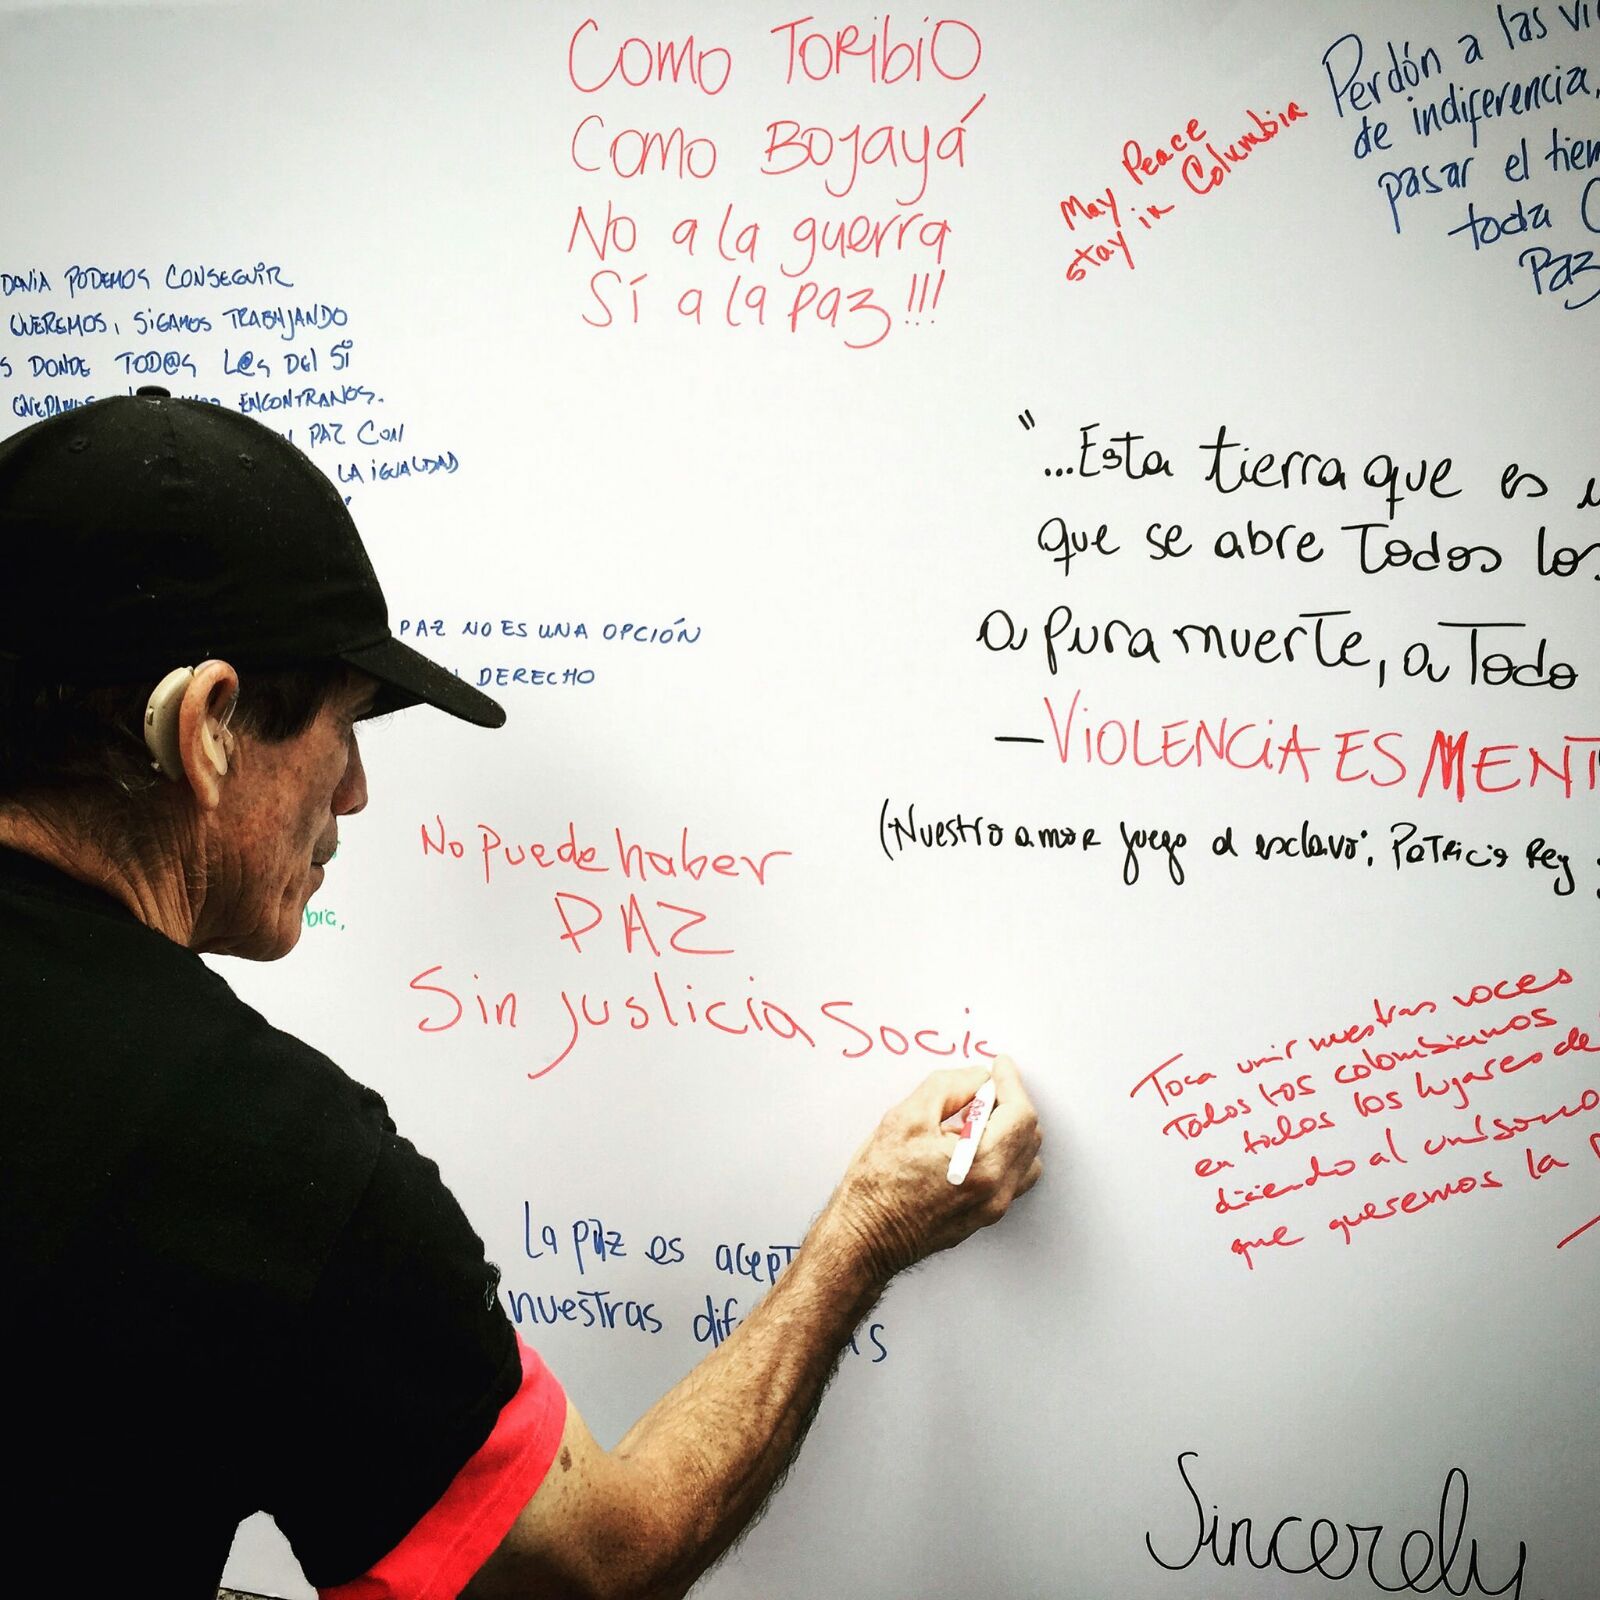 Como Toribio
Como Bojayá
No a la guerra
Sí a la paz!!!
May Peace
stay in Columbia
Perdón a las
de indiferencia,
pasar el
toda
Paz
PODEMOS CONSEGUIR
QUEREMOS, SIGAMOS TRABAJANDO
DONDE TOD@S L@S DEL SÍ
ENCONTRANOS.
PAZ CON
LA IGUALDAD
"
...Esta tierra que es
que se abre Todos los
a pura muerte, a Todo
—VIOLENCIA ES
(Nuestro amor juego al esclavo; Patricia Rey
PAZ NO ES UNA OPCIÓN
DERECHO
No Puede haber
PAZ
Sin justicia Socia
Toca unir nuestras voces
Todos los colombianos
en todos los lugares de
diciendo al unísono
que queremos la
La paz es
nuestras
Sincerely